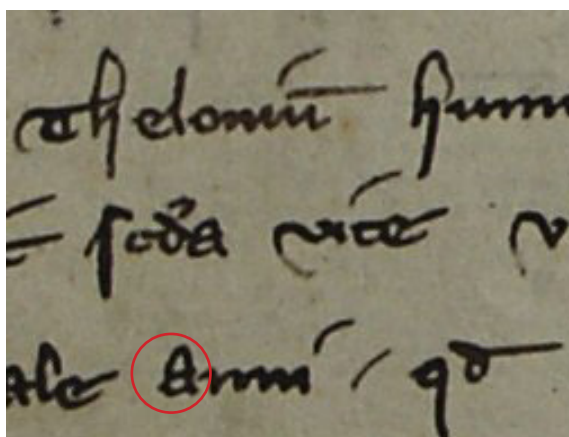 Thelomiū hum
scđa vice v
ale Anni / qđ